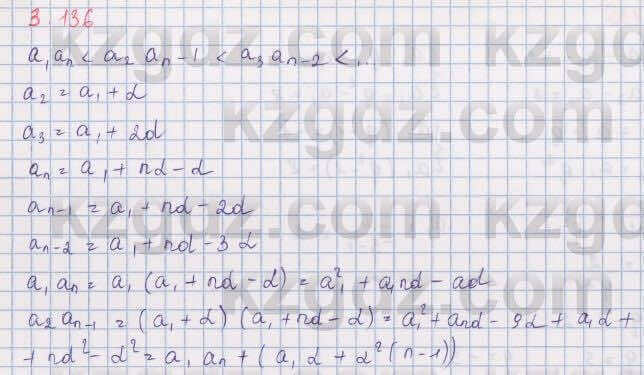 3.136
a₁aₙ < a₂ aₙ₋₁ < a₃ aₙ₋₂ < ...
a₂ = a₁ + d
a₃ = a₁ + 2d
aₙ = a₁ + nd - d
aₙ₋₁ = a₁ + nd - 2d
aₙ₋₂ = a₁ + nd - 3d
a₁ aₙ = a₁ (a₁ + nd - d) = a₁² + a₁nd - ad
a₂ aₙ₋₁ = (a₁ + d) (a₁ + nd - d) = a₁² + and - 9d + a₁d +
+ nd² - d² = a₁ aₙ + (a₁ d + d² (n-1))
kzgdz.com
kzgdz.com
kzgdz.com